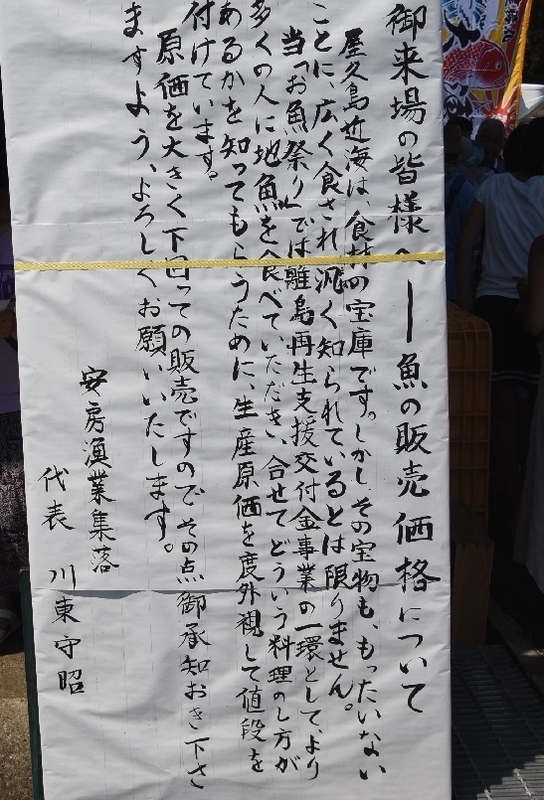 御来場の皆様へ――魚の販売価格について
屋久島近海は、食材の宝庫です。しかし、その宝物も、もったいない
ことに、広く食され汎く知られているとは限りません。
当「お魚祭り」では離島再生支援交付金事業の一環として、より
多くの人に地魚を食べていただき、合せてどういう料理のし方が
あるかを知ってもらうために、生産原価を度外視して値段を
付けています。
原価を大きく下回っての販売ですのでその点御承知おき下さ
ますよう、よろしくお願いいたします。
安房漁業集落
代表 川東守昭